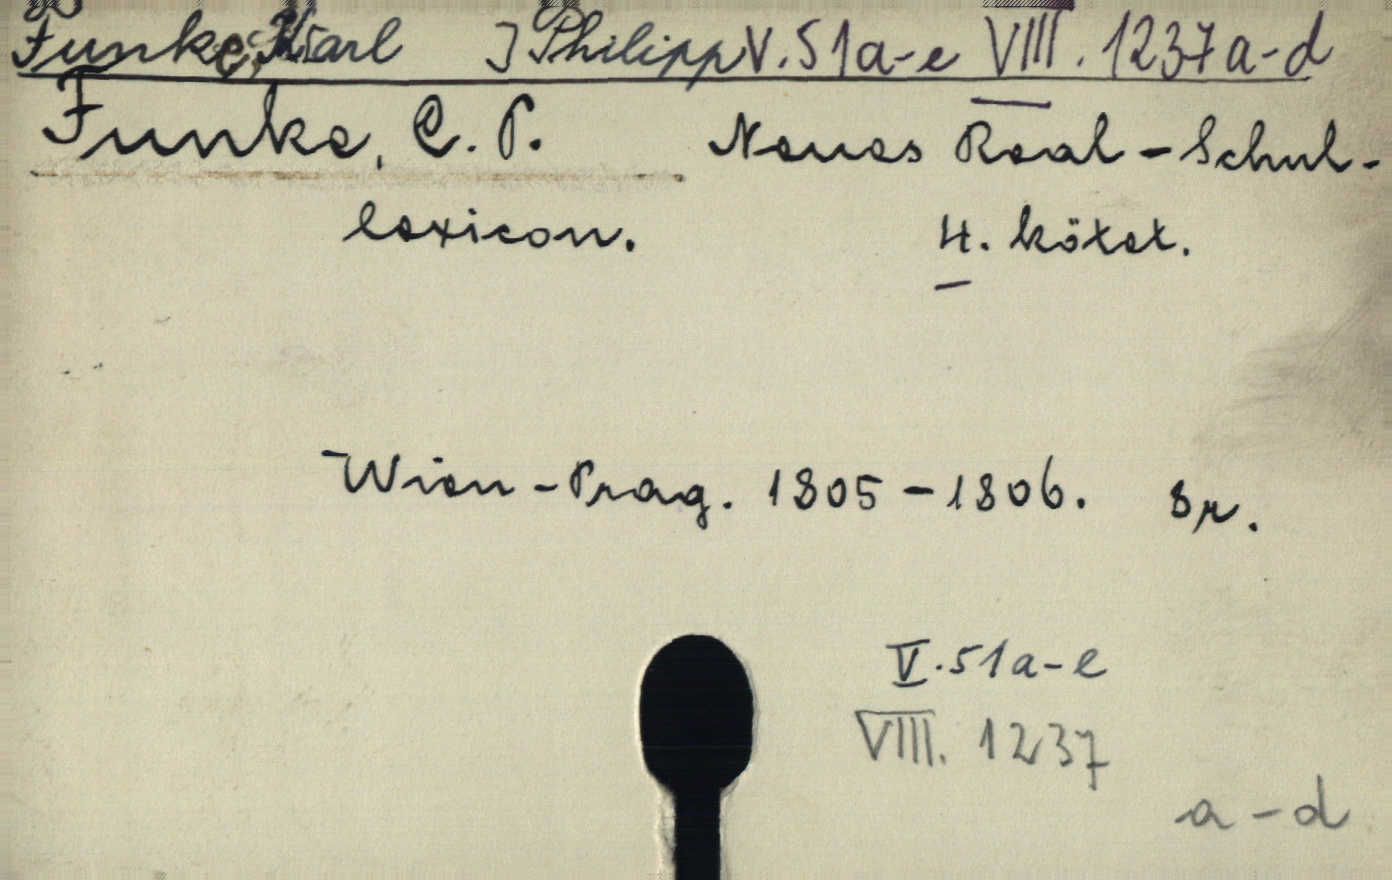 Funke, Karl J Philipp V. 51a-e VIII. 1237a-d
Funke, C. P. Neues Real-Schul-
lexicon. 4. kötet.
Wien-Prag. 1805-1806. 8r.
V. 51a-e
VIII. 1237
a-d